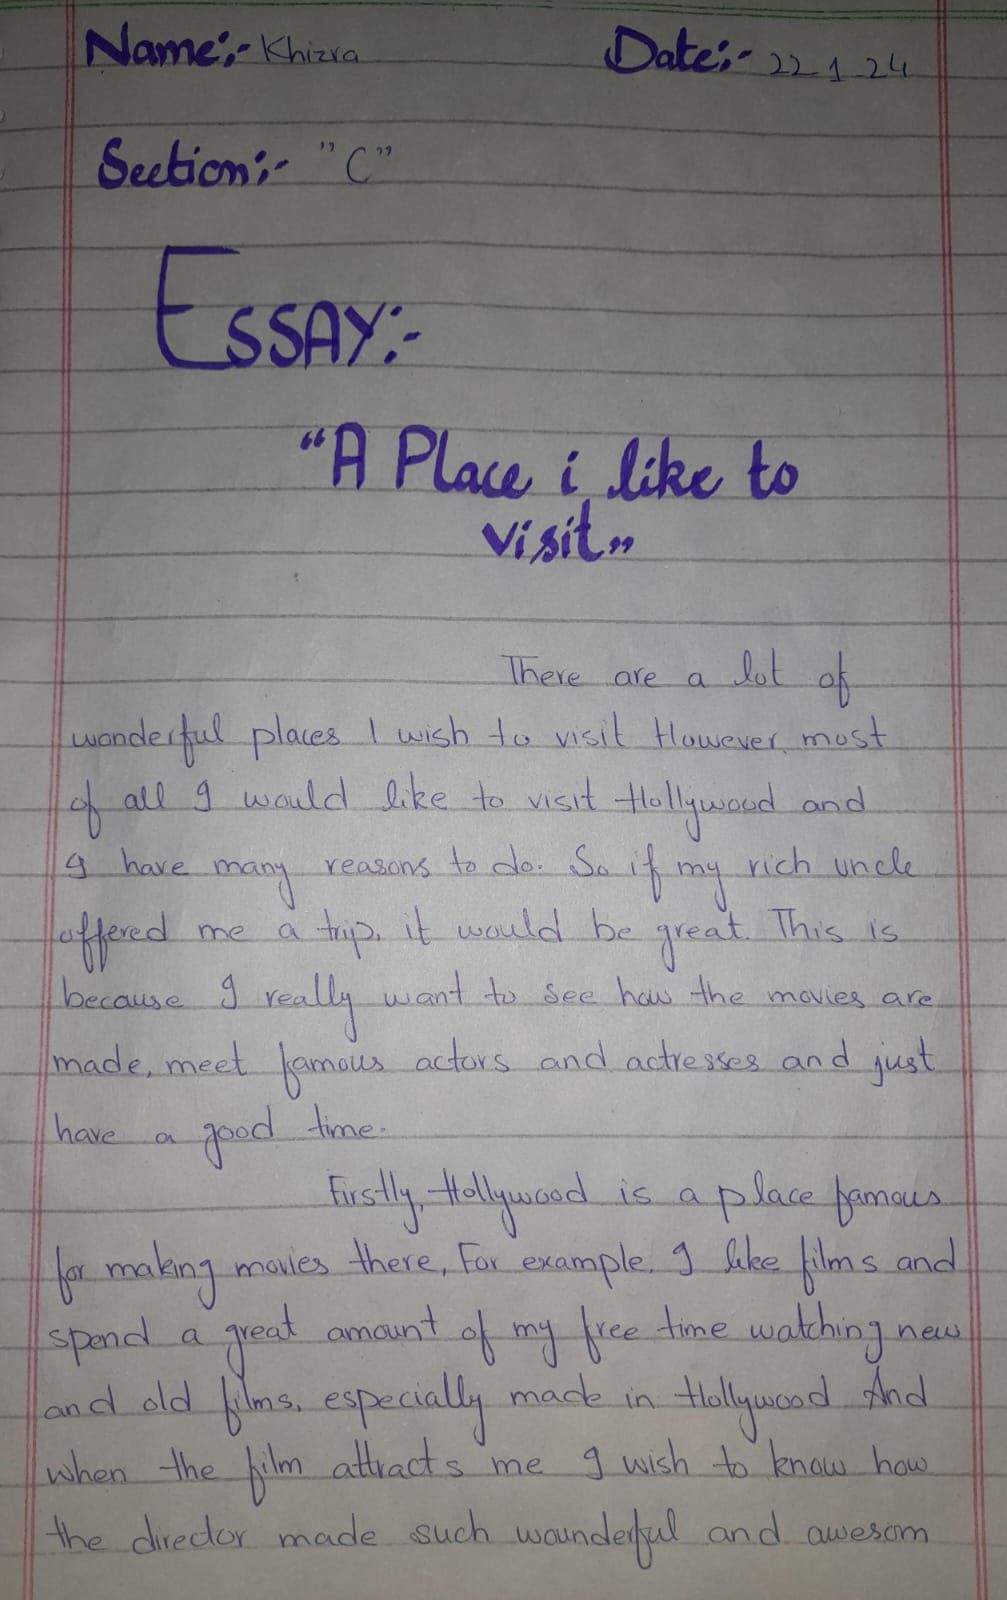 Name:- Khizra Date:- 22_1_24
Section:- "C"
ESSAY:-
"A Place i like to
visit"
There are a lot of
wonderful places I wish to visit However, most
of all I would like to visit Hollywood and
I have many reasons to do. So if my rich uncle
offered me a trip, it would be great. This is
because I really want to see how the movies are
made, meet famous actors and actresses and just
have a good time.
Firstly, Hollywood is a place famous
for making movies there, For example, I like films and
spend a great amount of my free time watching new
and old films, especially made in Hollywood And
when the film attracts me I wish to know how
the director made such wounderful and awesom